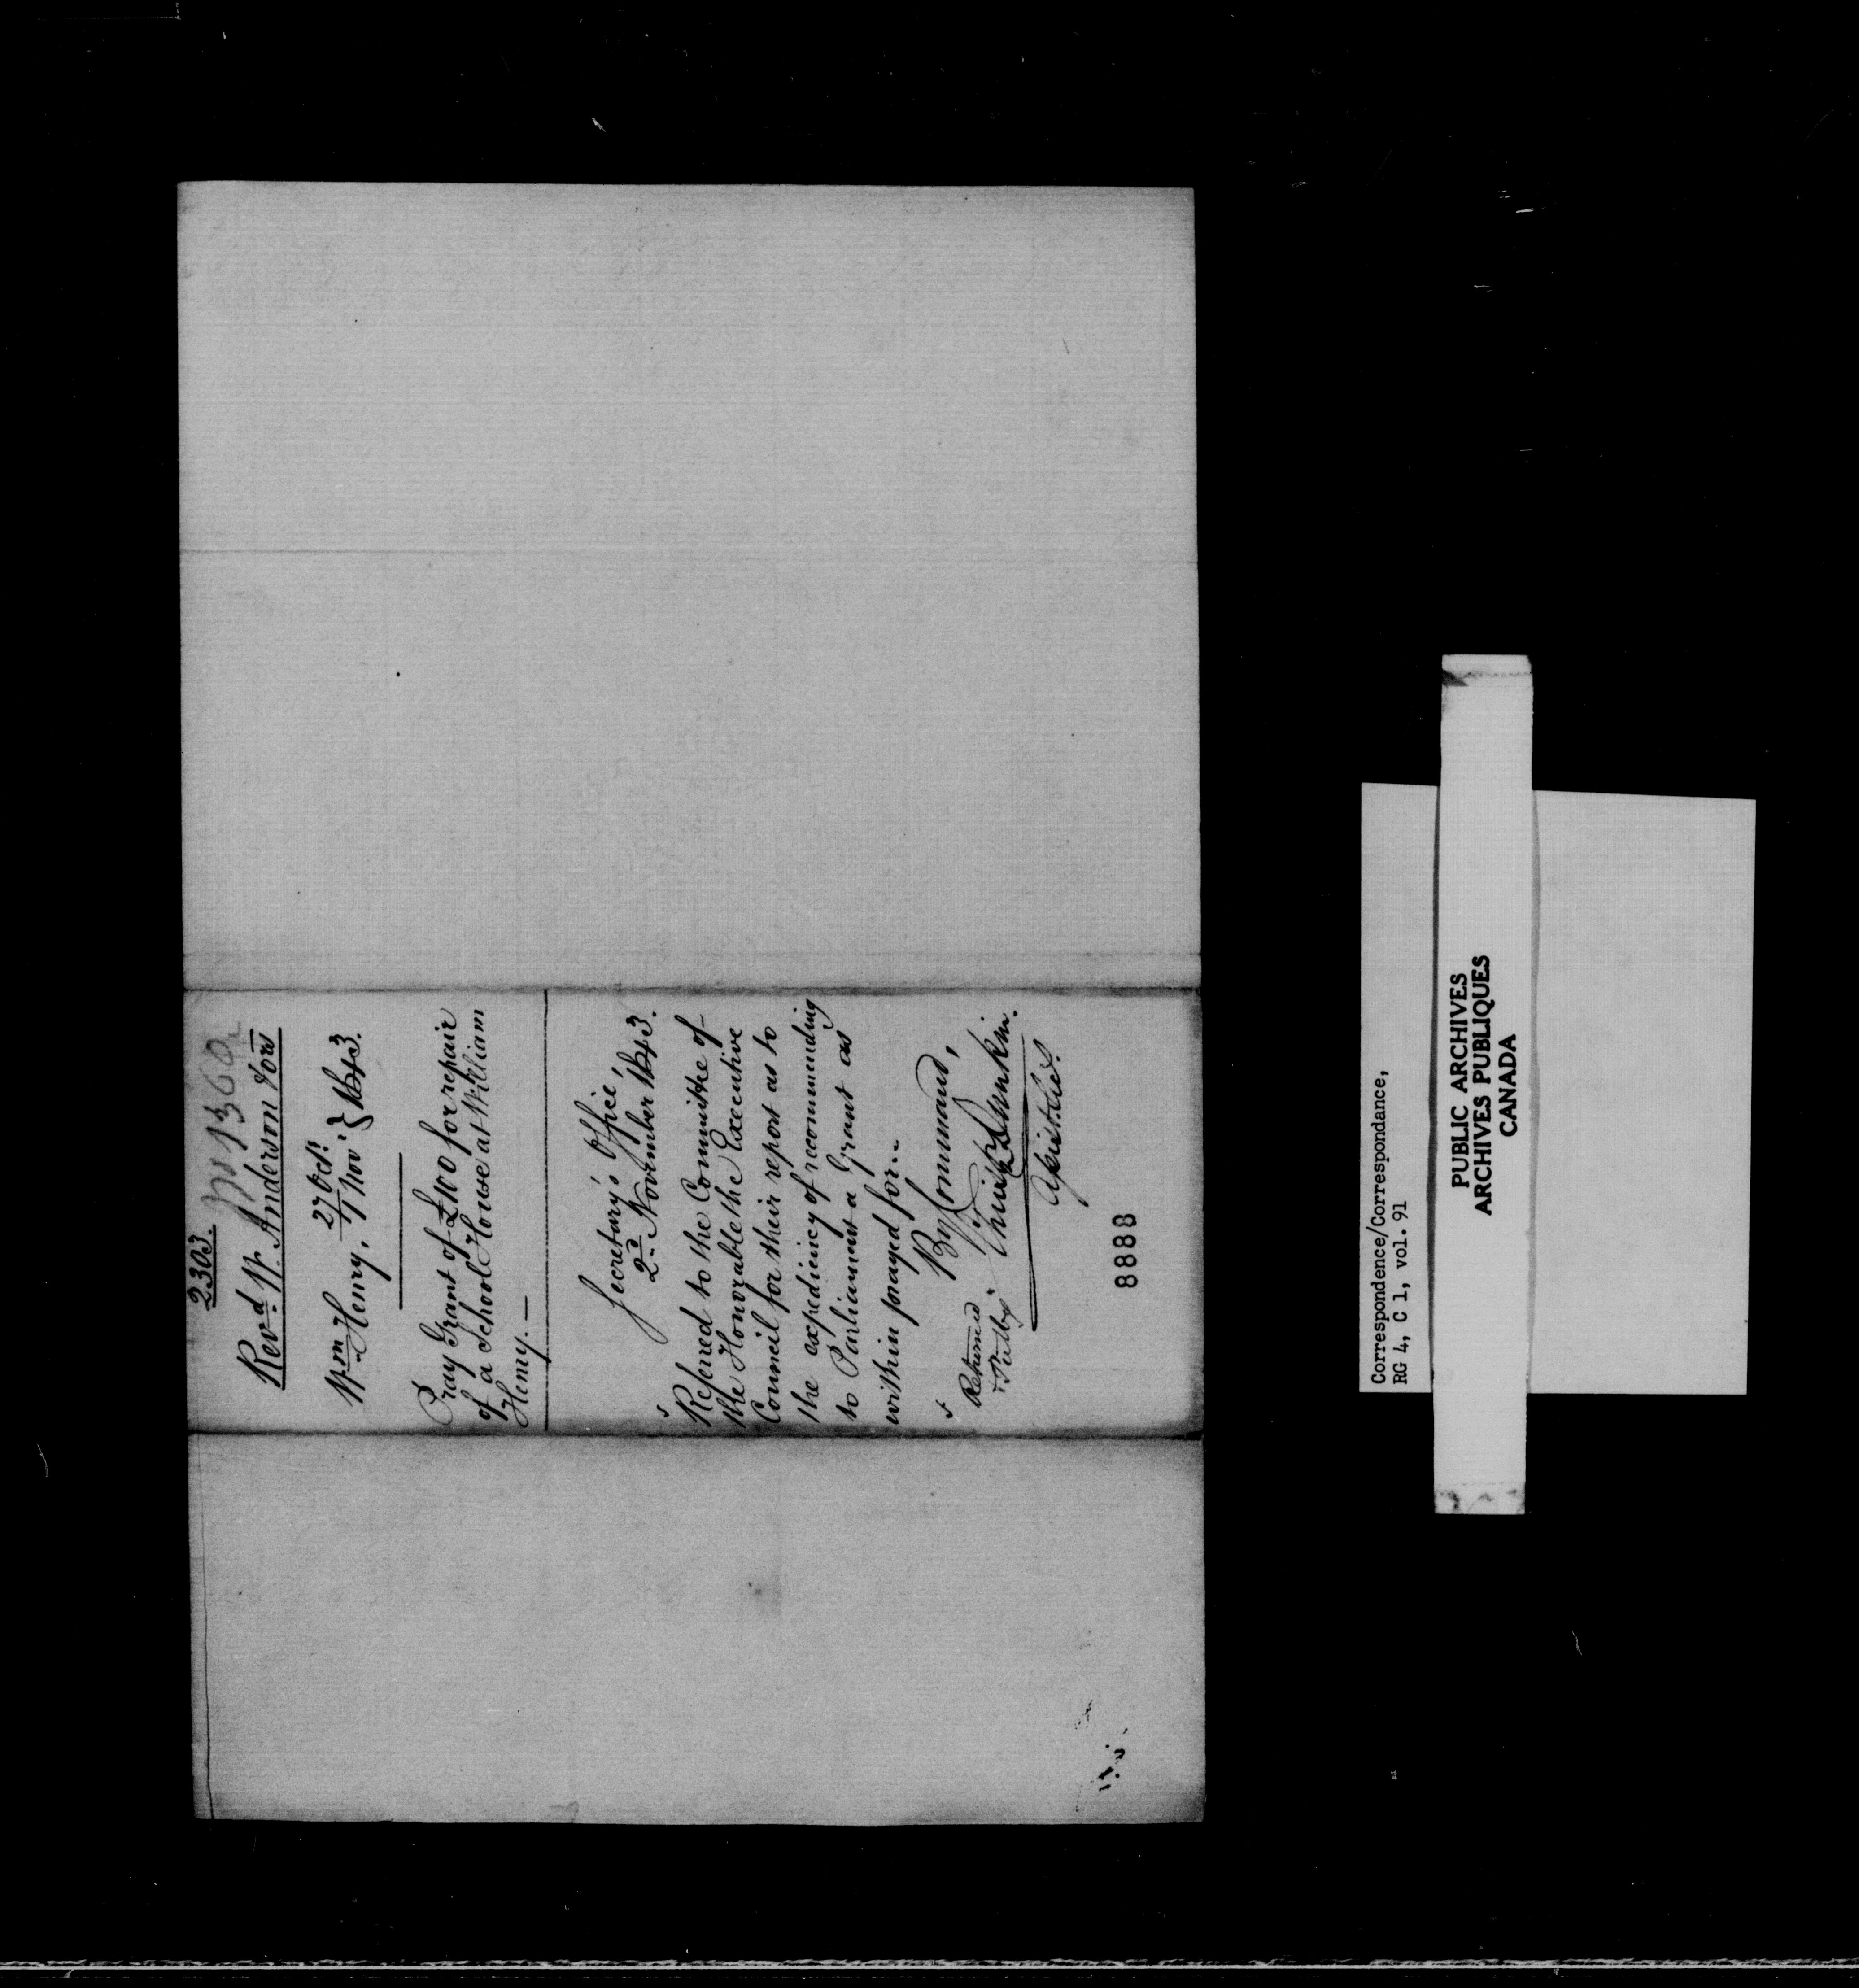 2303.
No 1360
Revd. W. Anderson & ors
Wm. Henry, 27 Oct. / 1 Nov. } 1843.
Pray Grant of £100 for repair
of a School House at William
Henry. —
Secretary's Office,
2d. November 1843.
Referred to the Committee of
the Honorable the Executive
Council for their report as to
the expediency of recommending
to Parliament a Grant as
within prayed for..
By Command,
Dunkin.
Returned
8888
Correspondence/Correspondance,
RG 4, C 1, vol. 91
PUBLIC ARCHIVES
ARCHIVES PUBLIQUES
CANADA